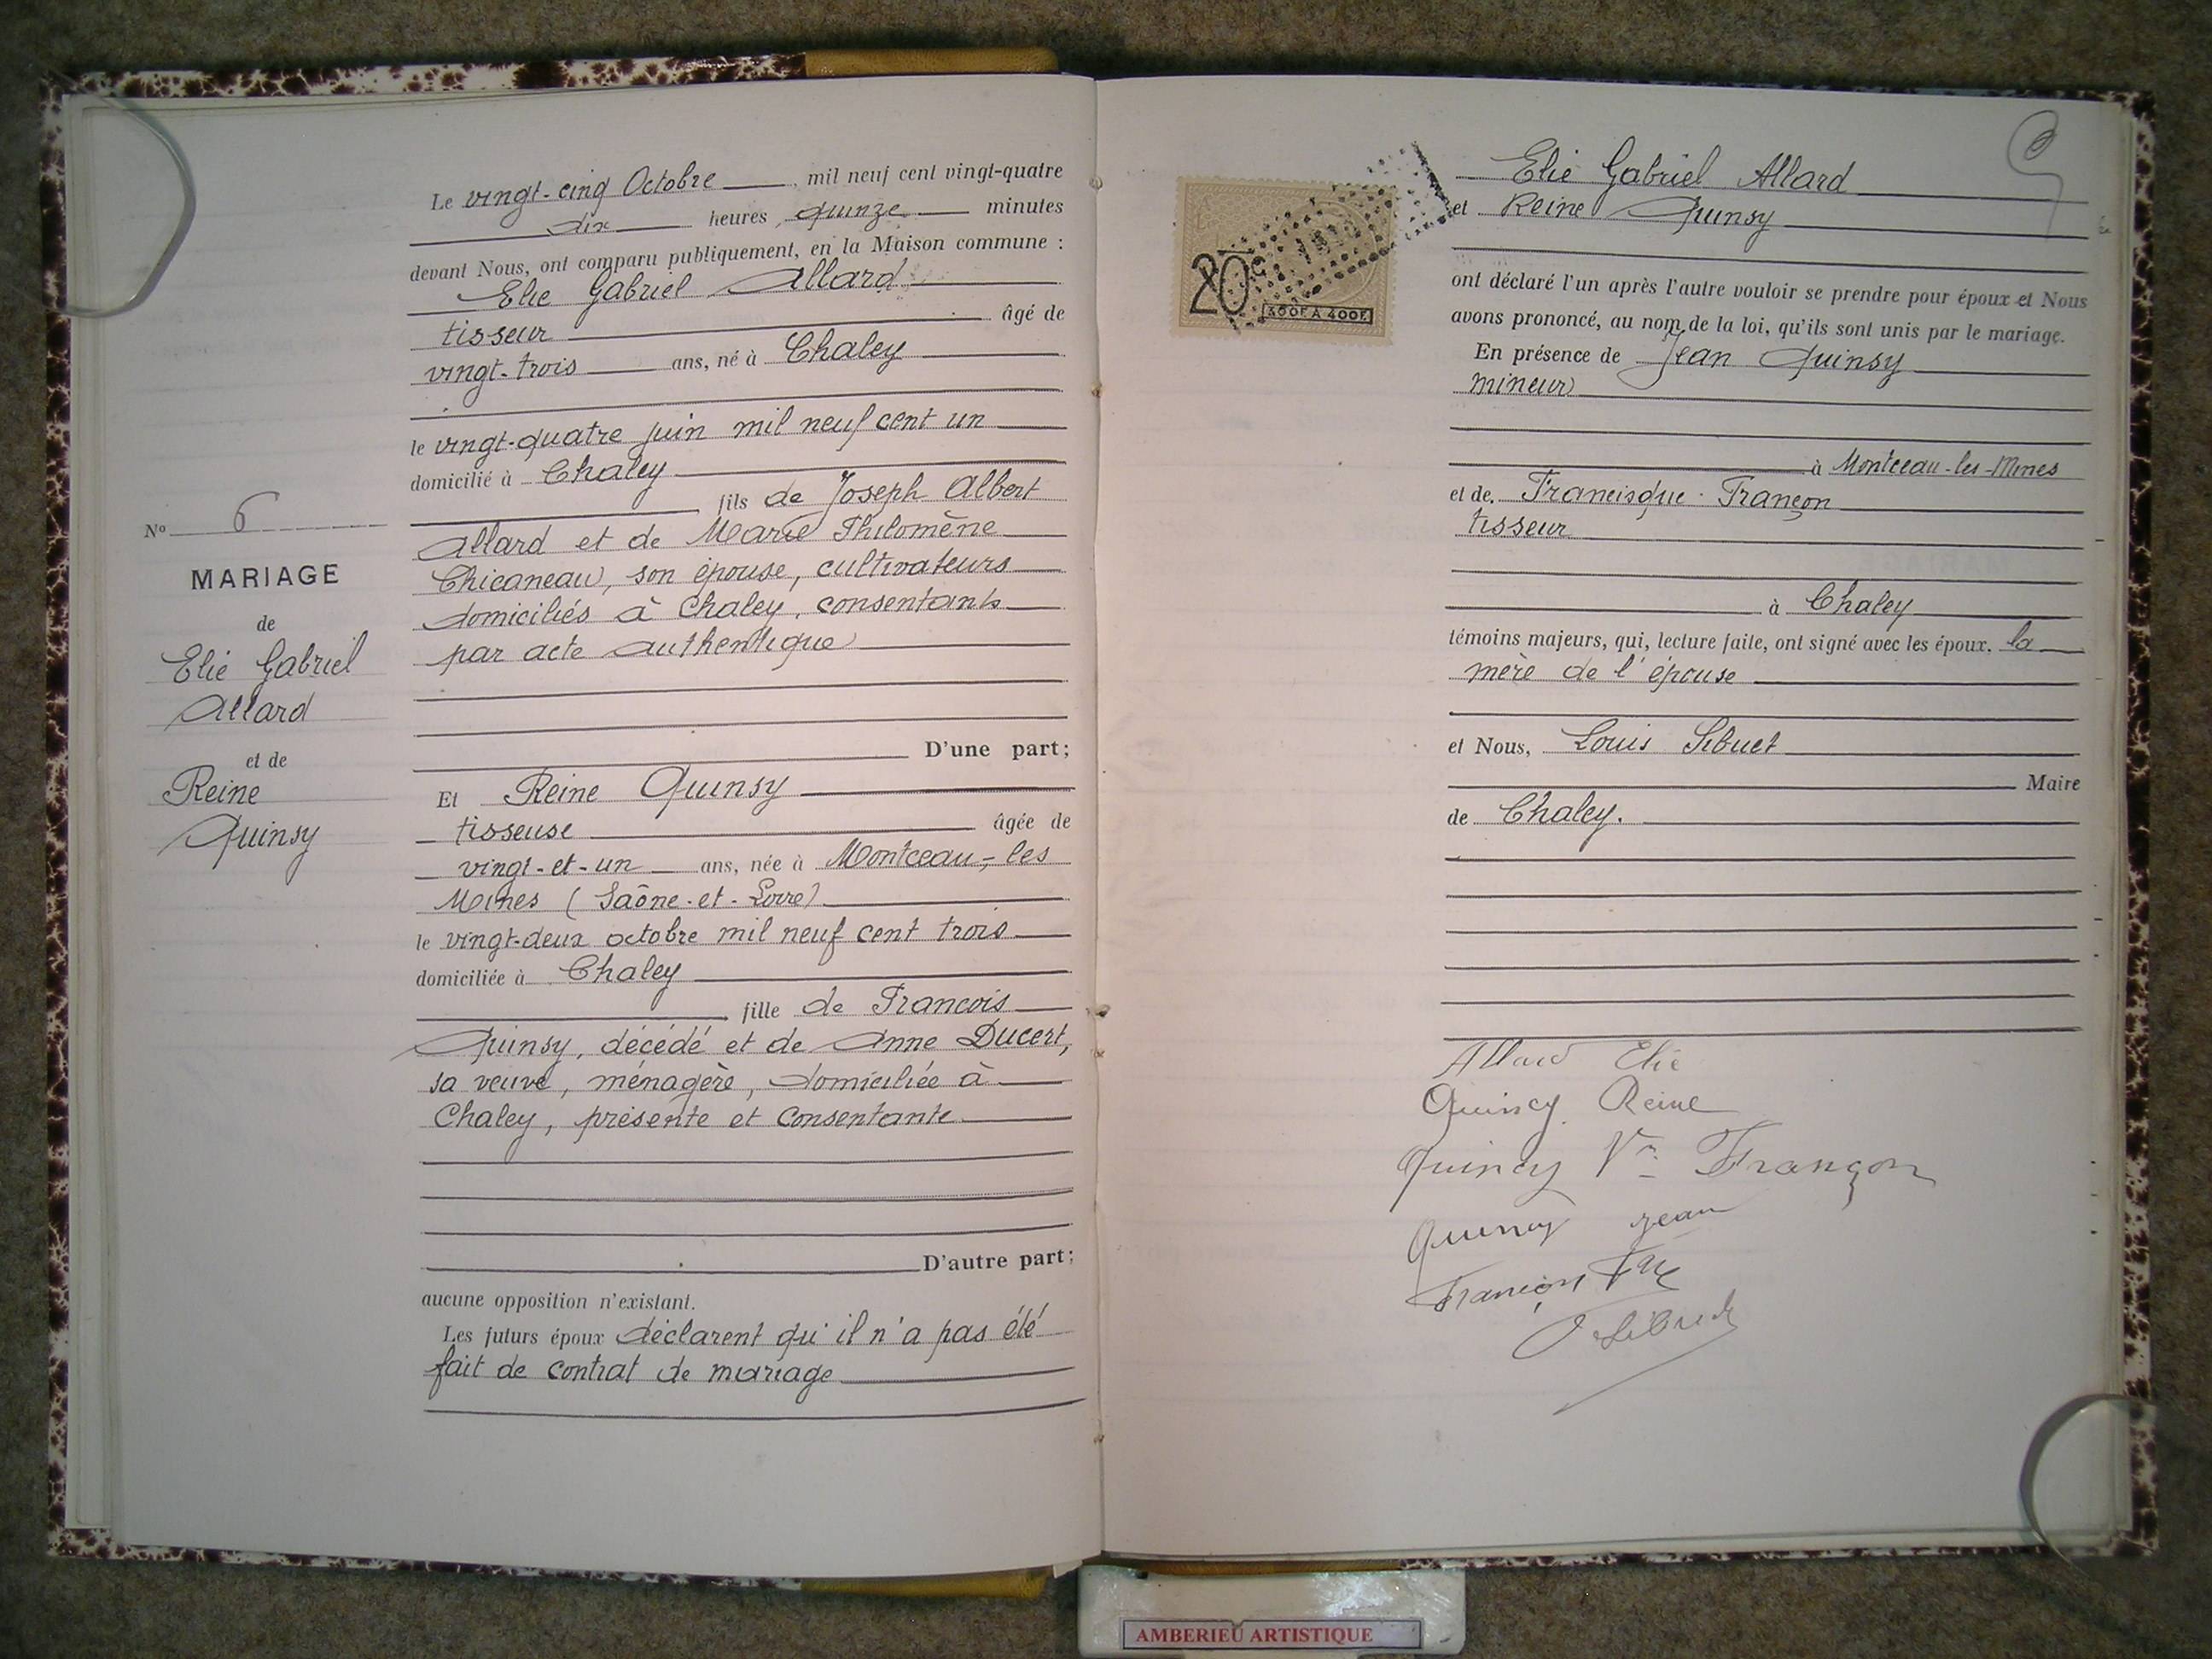 Le vingt-cinq Octobre, mil neuf cent vingt-quatre
dix heures quinze minutes
devant Nous, ont comparu publiquement, en la Maison commune :
Elie Gabriel Allard
tisseur âgé de
vingt-trois ans, né à Chaley
le vingt-quatre juin mil neuf cent un
domicilié à Chaley
fils de Joseph Albert
Allard et de Marie Philomène
Chicaneau, son épouse, cultivateurs
domiciliés à Chaley, consentants
par acte authentique
D'une part;
Et Reine Quinsy
tisseuse âgée de
vingt-et-un ans, née à Montceau-les
Mines (Saône-et-Loire)
le vingt-deux octobre mil neuf cent trois
domiciliée à Chaley
fille de Francois
Quinsy, décédé et de Anne Ducert,
sa veuve, ménagère, domiciliée à
Chaley, présente et consentante
D'autre part;
aucune opposition n'existant.
Les futurs époux déclarent qu'il n'a pas été
fait de contrat de mariage
No 6
MARIAGE
de
Elie Gabriel
Allard
et de
Reine
Quinsy
20c
300F. A 400F.
Elie Gabriel Allard
et Reine Quinsy
ont déclaré l'un après l'autre vouloir se prendre pour époux et Nous
avons prononcé, au nom de la loi, qu'ils sont unis par le mariage.
En présence de Jean Quinsy
mineur
à Montceau-les-Mines
et de Francisque Françon
tisseur
à Chaley
témoins majeurs, qui, lecture faite, ont signé avec les époux, la
mère de l'épouse
et Nous, Louis Sibuet
Maire
de Chaley.
Allard Elie
Quincy Reine
Quincy Ve Françon
Quincy Jean
Françon
Sibuet
AMBERIEU ARTISTIQUE